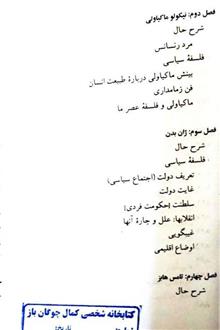 فصل دوم: نیکولو ماکیاولی
شرح حال
مرد رنسانس
فلسفهٔ سیاسی
بینش ماکیاولی دربارهٔ طبیعت انسان
فن زمامداری
ماکیاولی و فلسفهٔ عصر ما
فصل سوم: ژان بدن
شرح حال
فلسفهٔ سیاسی
تعریف دولت (اجتماع سیاسی)
غایت دولت
سلطنت (حکومت فردی)
انقلابها: علل و چارهٔ آنها
غیبگویی
اوضاع اقلیمی
فصل چهارم: تامس هابز
شرح حال
کتابخانه شخصی کمال چوگان باز
تاریخ: